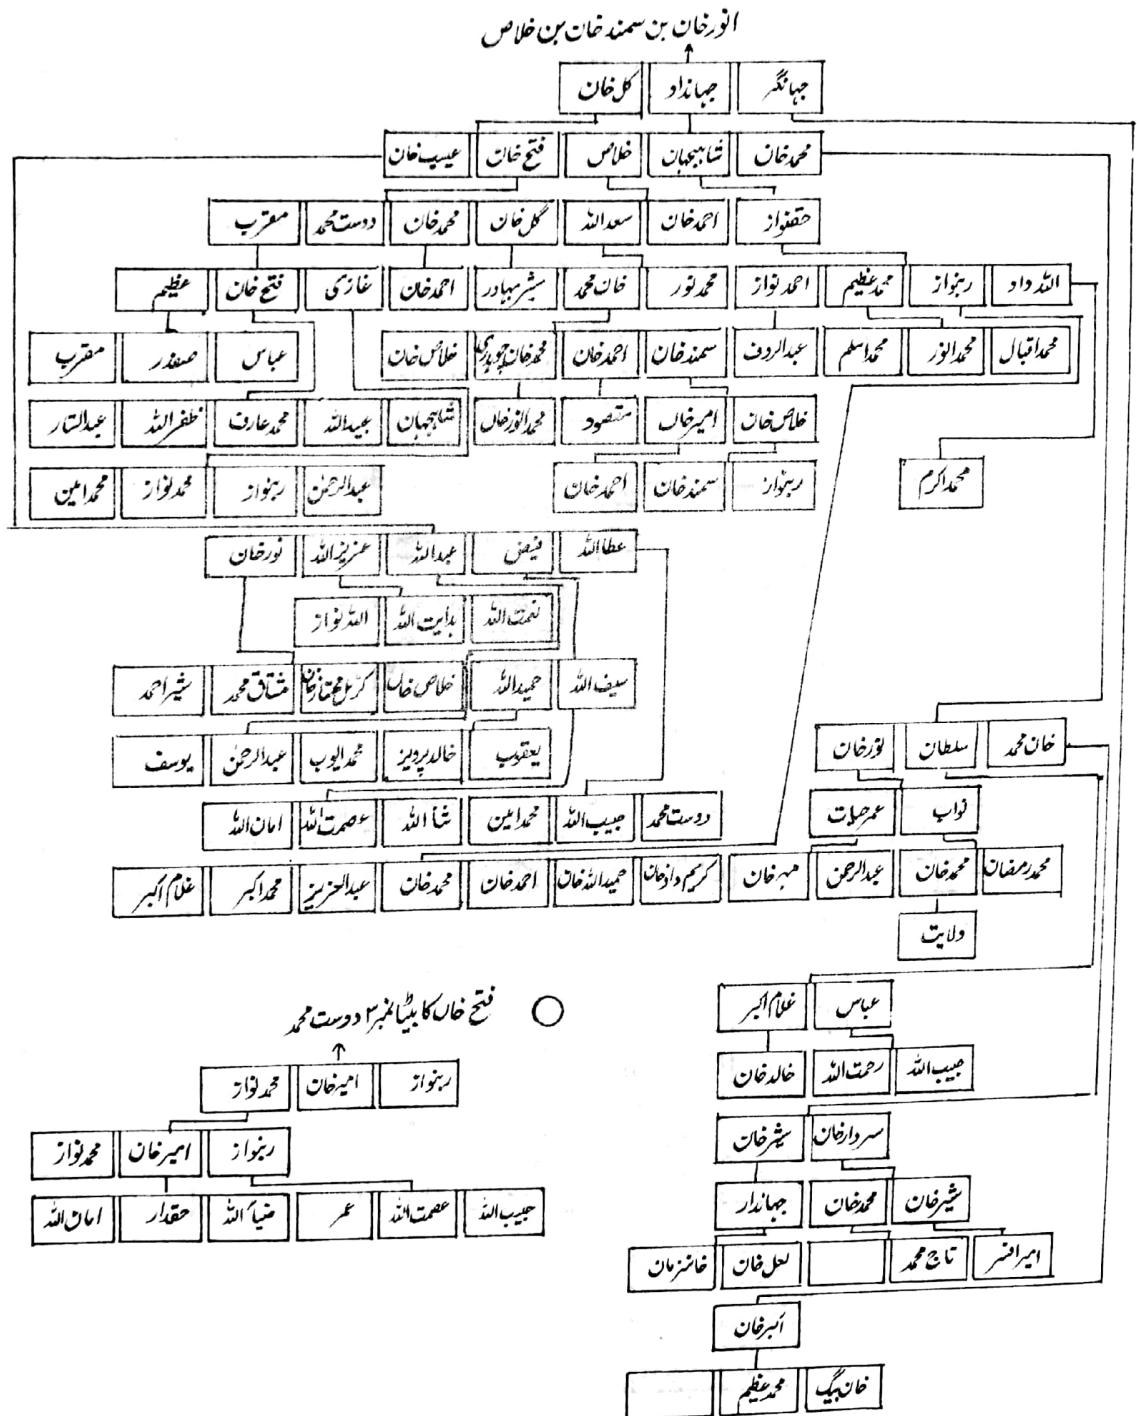 انور خان بن سمند خان بن خلاص
جہانگیر جہانداد گل خان
محمد خان شاہجہان خلاص فتح خان عیسب خان
حقنواز احمد خان سعد اللہ گل خان محمد خان دوست محمد مقرب
اللہ داد ربنواز محمد عظیم احمد نواز محمد نور خان محمد شیر بہادر احمد خان غازی فتح خان عظیم
محمد اقبال محمد انور محمد اسلم عبدالروف سمند خان احمد خان محمد خان چوہدری خلاص خان عباس صفدر مقرب
خلاص خان امیر خاں مقصود محمد انور خاں شاہجہان عبید اللہ محمد عارف ظفر اللہ عبدالستار
محمد اکرم ربنواز سمند خان احمد خان عبدالرحمٰن ربنواز محمد نواز محمد امین
عطا اللہ فیض عبد اللہ عزیز اللہ نور خان
نعمت اللہ ہدایت اللہ اللہ نواز
سیف اللہ حمید اللہ خلاص خاں کرنل ممتاز خان مشتاق محمد شیر احمد
خان محمد سلطان نور خان یعقوب خالد پرویز محمد ایوب عبدالرحمٰن یوسف
نواب عمر حیات دوست محمد حبیب اللہ محمد امین ثنأ اللہ عصمت اللہ امان اللہ
محمد رمضان محمد خان عبدالرحمٰن مہر خان کریم داد خان حمید اللہ خان احمد خان محمد خان عبدالعزیز محمد اکبر غلام اکبر
ولایت
عباس غلام اکبر
حبیب اللہ رحمت اللہ خالد خان
سردار خان شیر خان
شیر خان محمد خان جہاندار
امیر افسر تاج محمد لعل خان خانزمان
اکبر خان
خان بیگ محمد عظیم
فتح خاں کا بیٹا نمبر ۳ دوست محمد
ربنواز امیر خان محمد نواز
ربنواز امیر خان محمد نواز
حبیب اللہ عصمت اللہ عمر ضیأ اللہ حقدار امان اللہ